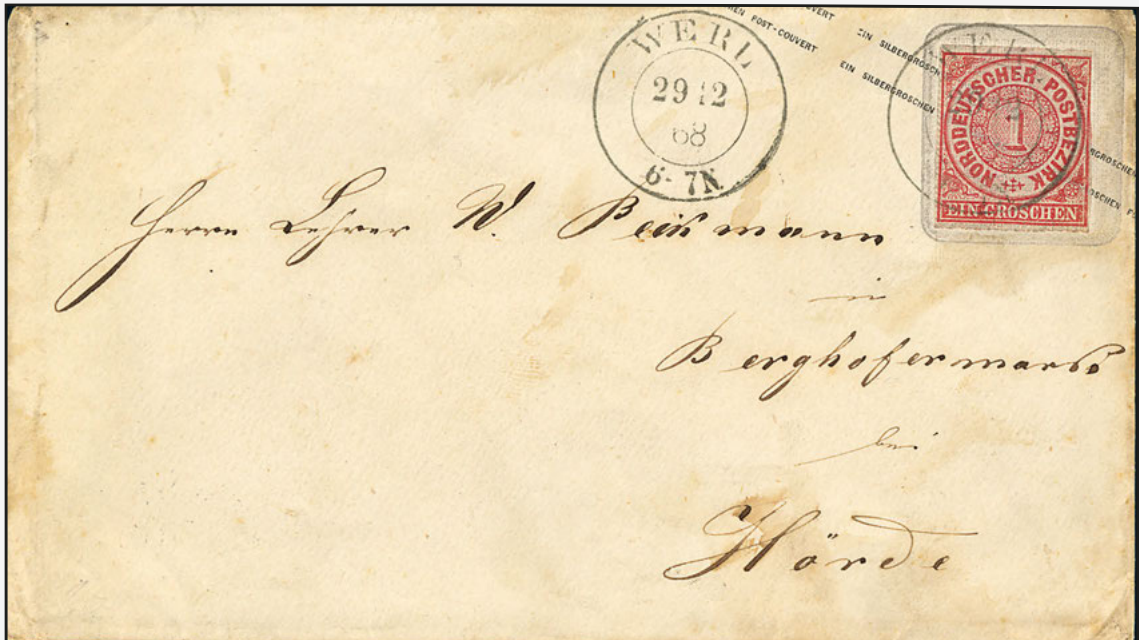 WERL
29 12
68
6-7N
POST-COUVERT
EIN SILBERGROSCHEN
EIN SILBERGROSCHEN
NORDDEUTSCHER-POSTBEZIRK
1
EIN GROSCHEN
Herrn Lehrer W. Beckmann
in
Berghofermark
bei
Hörde